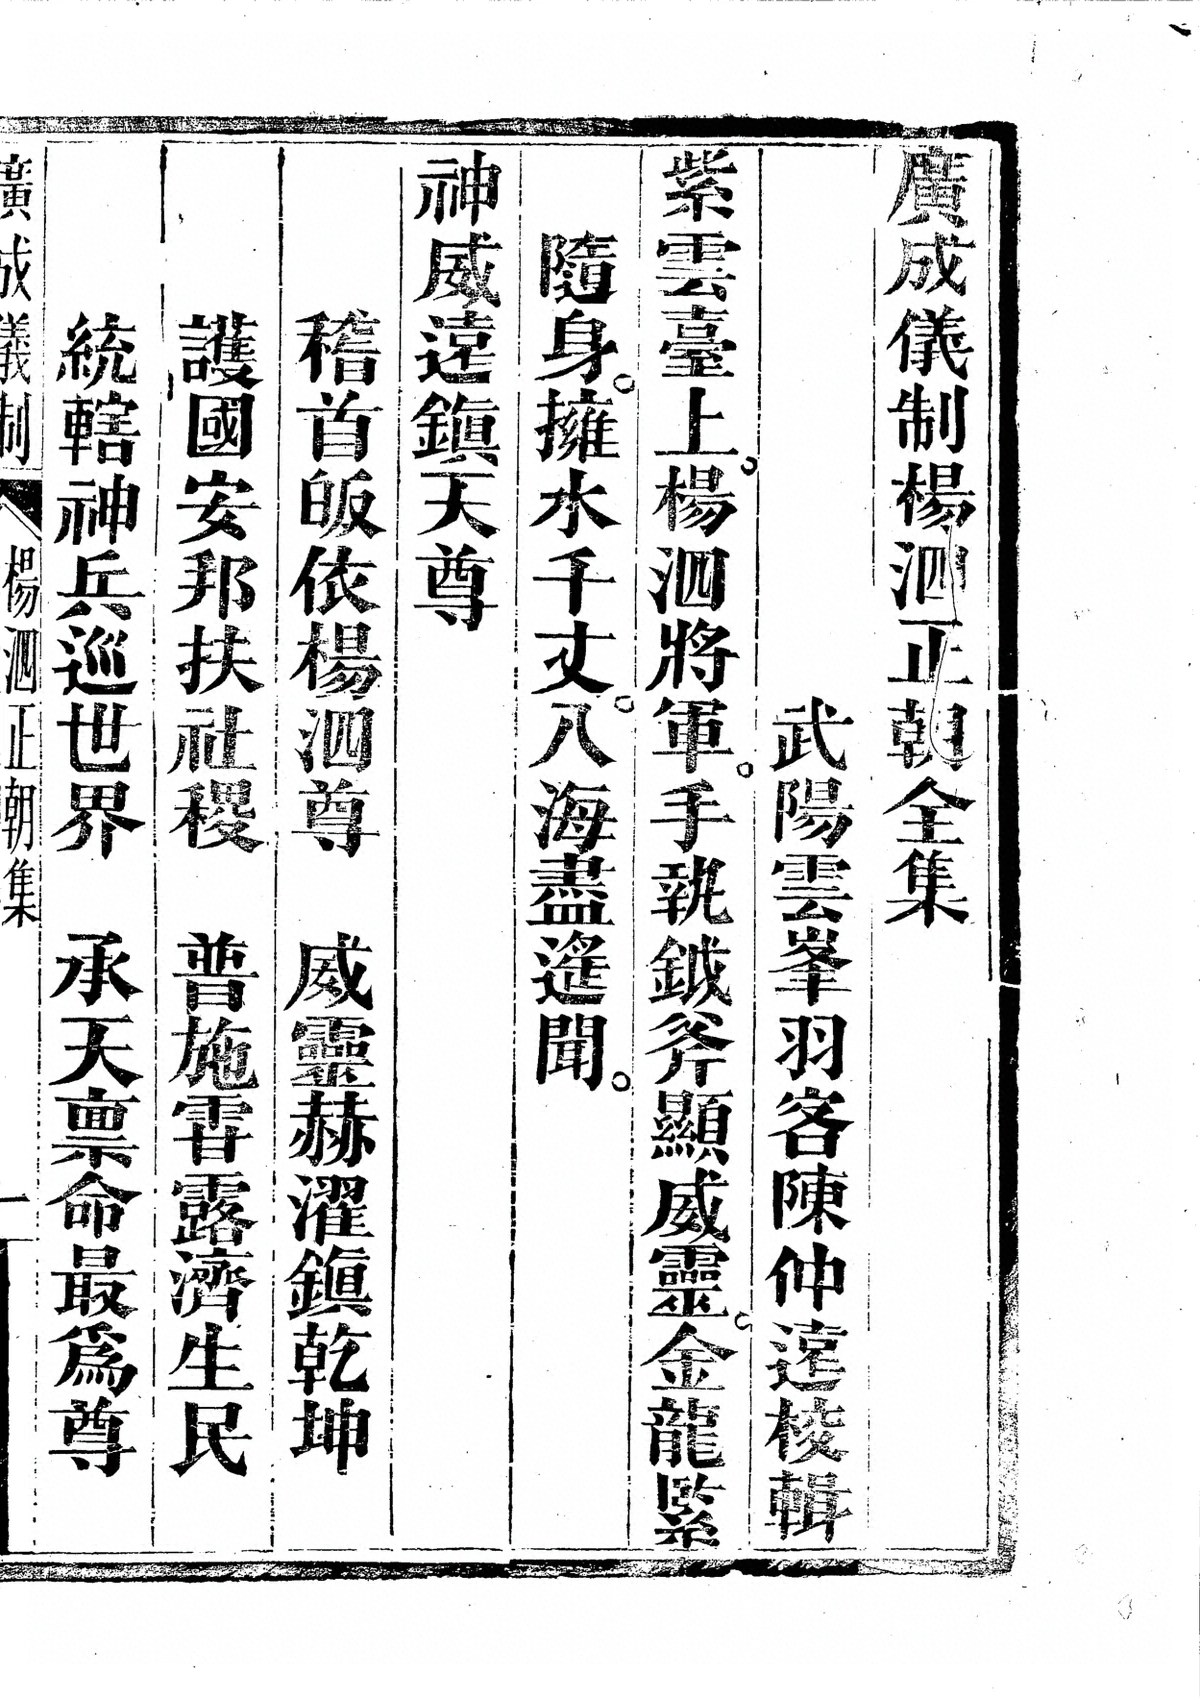 廣成儀制楊泗正朝全集
武陽雲峯羽客陳仲遠校輯
紫雲臺上。楊泗將軍。手執鉞斧顯威靈。金龍緊
隨身。擁水千丈。八海盡遥聞。
神威遠鎮天尊
稽首皈依楊泗尊　威靈赫濯鎮乾坤
護國安邦扶社稷　普施雨露濟生民
統轄神兵巡世界　承天禀命最爲尊
廣成儀制　楊泗正朝集　一